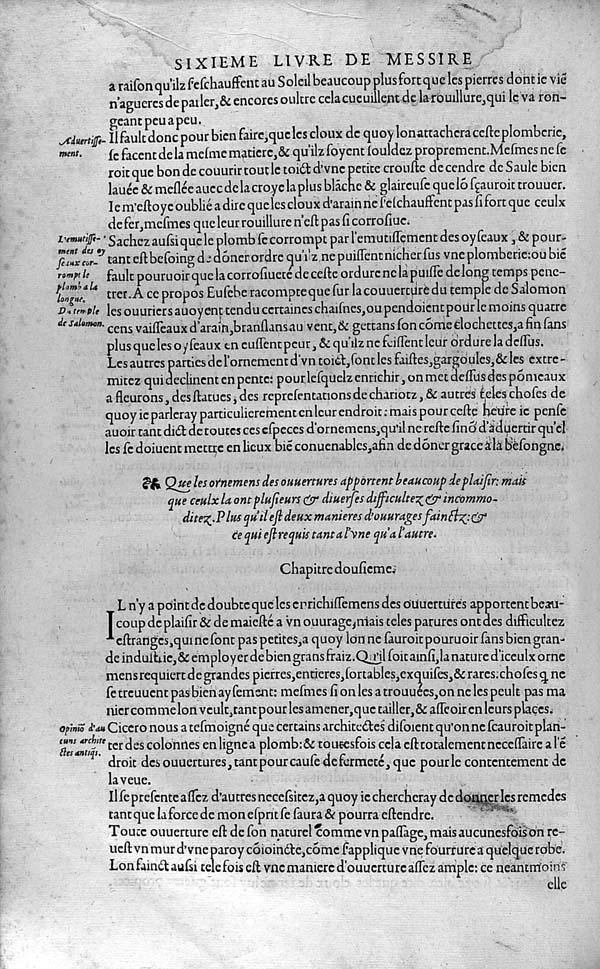 SIXIEME LIVRE DE MESSIRE
a raison qu'ilz s'eschauffent au Soleil beaucoup plus fort que les pierres dont ie viẽ
n'agueres de parler, & encores oultre cela cueuillent de la rouillure, qui le va ron-
geant peu a peu.
Aduertisse-
ment.
Il fault donc pour bien faire, que les cloux de quoy lon attachera ceste plomberie,
se facent de la mesme matiere, & qu'ilz soyent souldez proprement. Mesmes ne se
roit que bon de couurir tout le toict d'vne petite crouste de cendre de Saule bien
lauée & meslée auec de la croye la plus blãche & glaireuse que lõ sçauroit trouuer.
Ie m'estoye oublié a dire que les cloux d'arain ne s'eschauffent pas si fort que ceulx
de fer, mesmes que leur rouillure n'est pas si corrosiue.
L'emutisse-
ment des oy
seaux cor-
rompt le
plomb a la
longue.
Du temple
de Salomon.
Sachez aussi que le plomb se corrompt par l'emutissement des oyseaux, & pour-
tant est besoing de dõner ordre qu'ilz ne puissent nicher sus vne plomberie: ou biẽ
fault pouruoir que la corrosiueté de ceste ordure ne la puisse de long temps pene-
trer. A ce propos Eusebe racompte que sur la couuerture du temple de Salomon
les ouuriers auoyent tendu certaines chaisnes, ou pendoient pour le moins quatre
cens vaisseaux d'arain, branslans au vent, & gettans son cõme clochettes, a fin sans
plus que les oyseaux en eussent peur, & qu'ilz ne feissent leur ordure la dessus.
Les autres parties de l'ornement d'vn toict, sont les faistes, gargoules, & les extre-
mitez qui declinent en pente: pour lesquelz enrichir, on met dessus des põmeaux
a fleurons, des statues, des representations de chariotz, & autres teles choses de
quoy ie parleray particulierement en leur endroit: mais pour ceste heure ie pense
auoir tant dict de toutes ces especes d'ornemens, qu'il ne reste sinõ d'aduertir qu'el
les se doiuent mettre en lieux biẽ conuenables, afin de dõner grace a la besongne.
Que les ornemens des ouuertures apportent beaucoup de plaisir: mais
que ceulx la ont plusieurs & diuerses difficultez & incommo-
ditez. Plus qu'il est deux manieres d'ouurages fainctz: &
ce qui est requis tant a l'vne qu'a l'autre.
Chapitre dousieme.
IL n'y a point de doubte que les enrichissemens des ouuertures apportent beau-
coup de plaisir & de maiesté a vn ouurage, mais teles parures ont des difficultez
estranges, qui ne sont pas petites, a quoy lon ne sauroit pouruoir sans bien gran-
de industrie, & employer de bien grans fraiz. Qu'il soit ainsi, la nature d'iceulx orne
mens requiert de grandes pierres, entieres, sortables, exquises, & rares: choses q̃ ne
se treuuent pas bien aysement: mesmes si on les a trouuées, on ne les peult pas ma
nier comme lon veult, tant pour les amener, que tailler, & asseoir en leurs places.
Opiniõ d'au
cuns archite
ctes antiqs.
Cicero nous a tesmoigné que certains architectes disoient qu'on ne scauroit plan-
ter des colonnes en ligne a plomb: & toutesfois cela est totalement necessaire a l'ẽ
droit des ouuertures, tant pour cause de fermeté, que pour le contentement de
la veue.
Il se presente assez d'autres necessitez, a quoy ie chercheray de donner les remedes
tant que la force de mon esprit se saura & pourra estendre.
Toute ouuerture est de son naturel comme vn passage, mais aucunesfois on re-
uest vn mur d'vne paroy cõioincte, cõme s'applique vne fourrure a quelque robe.
Lon fainct aussi tele fois est vne maniere d'ouuerture assez ample: ce neantmoins
elle